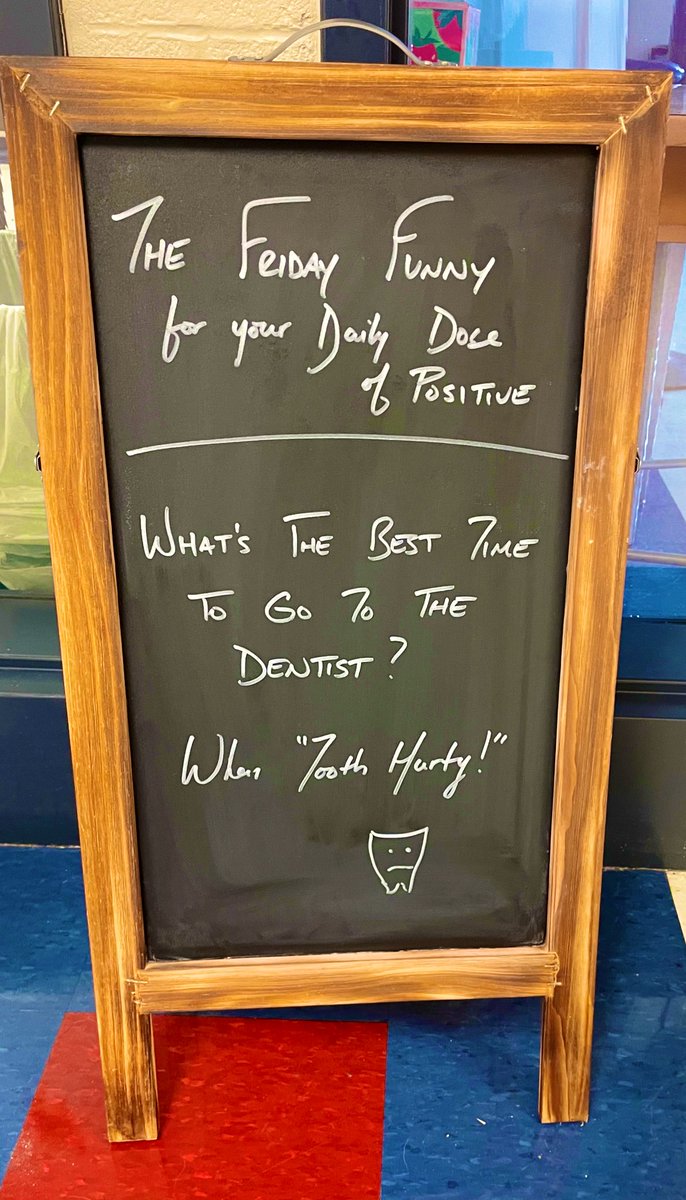 THE FRIDAY FUNNY
for your Daily Dose
of POSITIVE
WHAT'S THE BEST TIME
TO GO TO THE
DENTIST?
When "Tooth Hurty!"